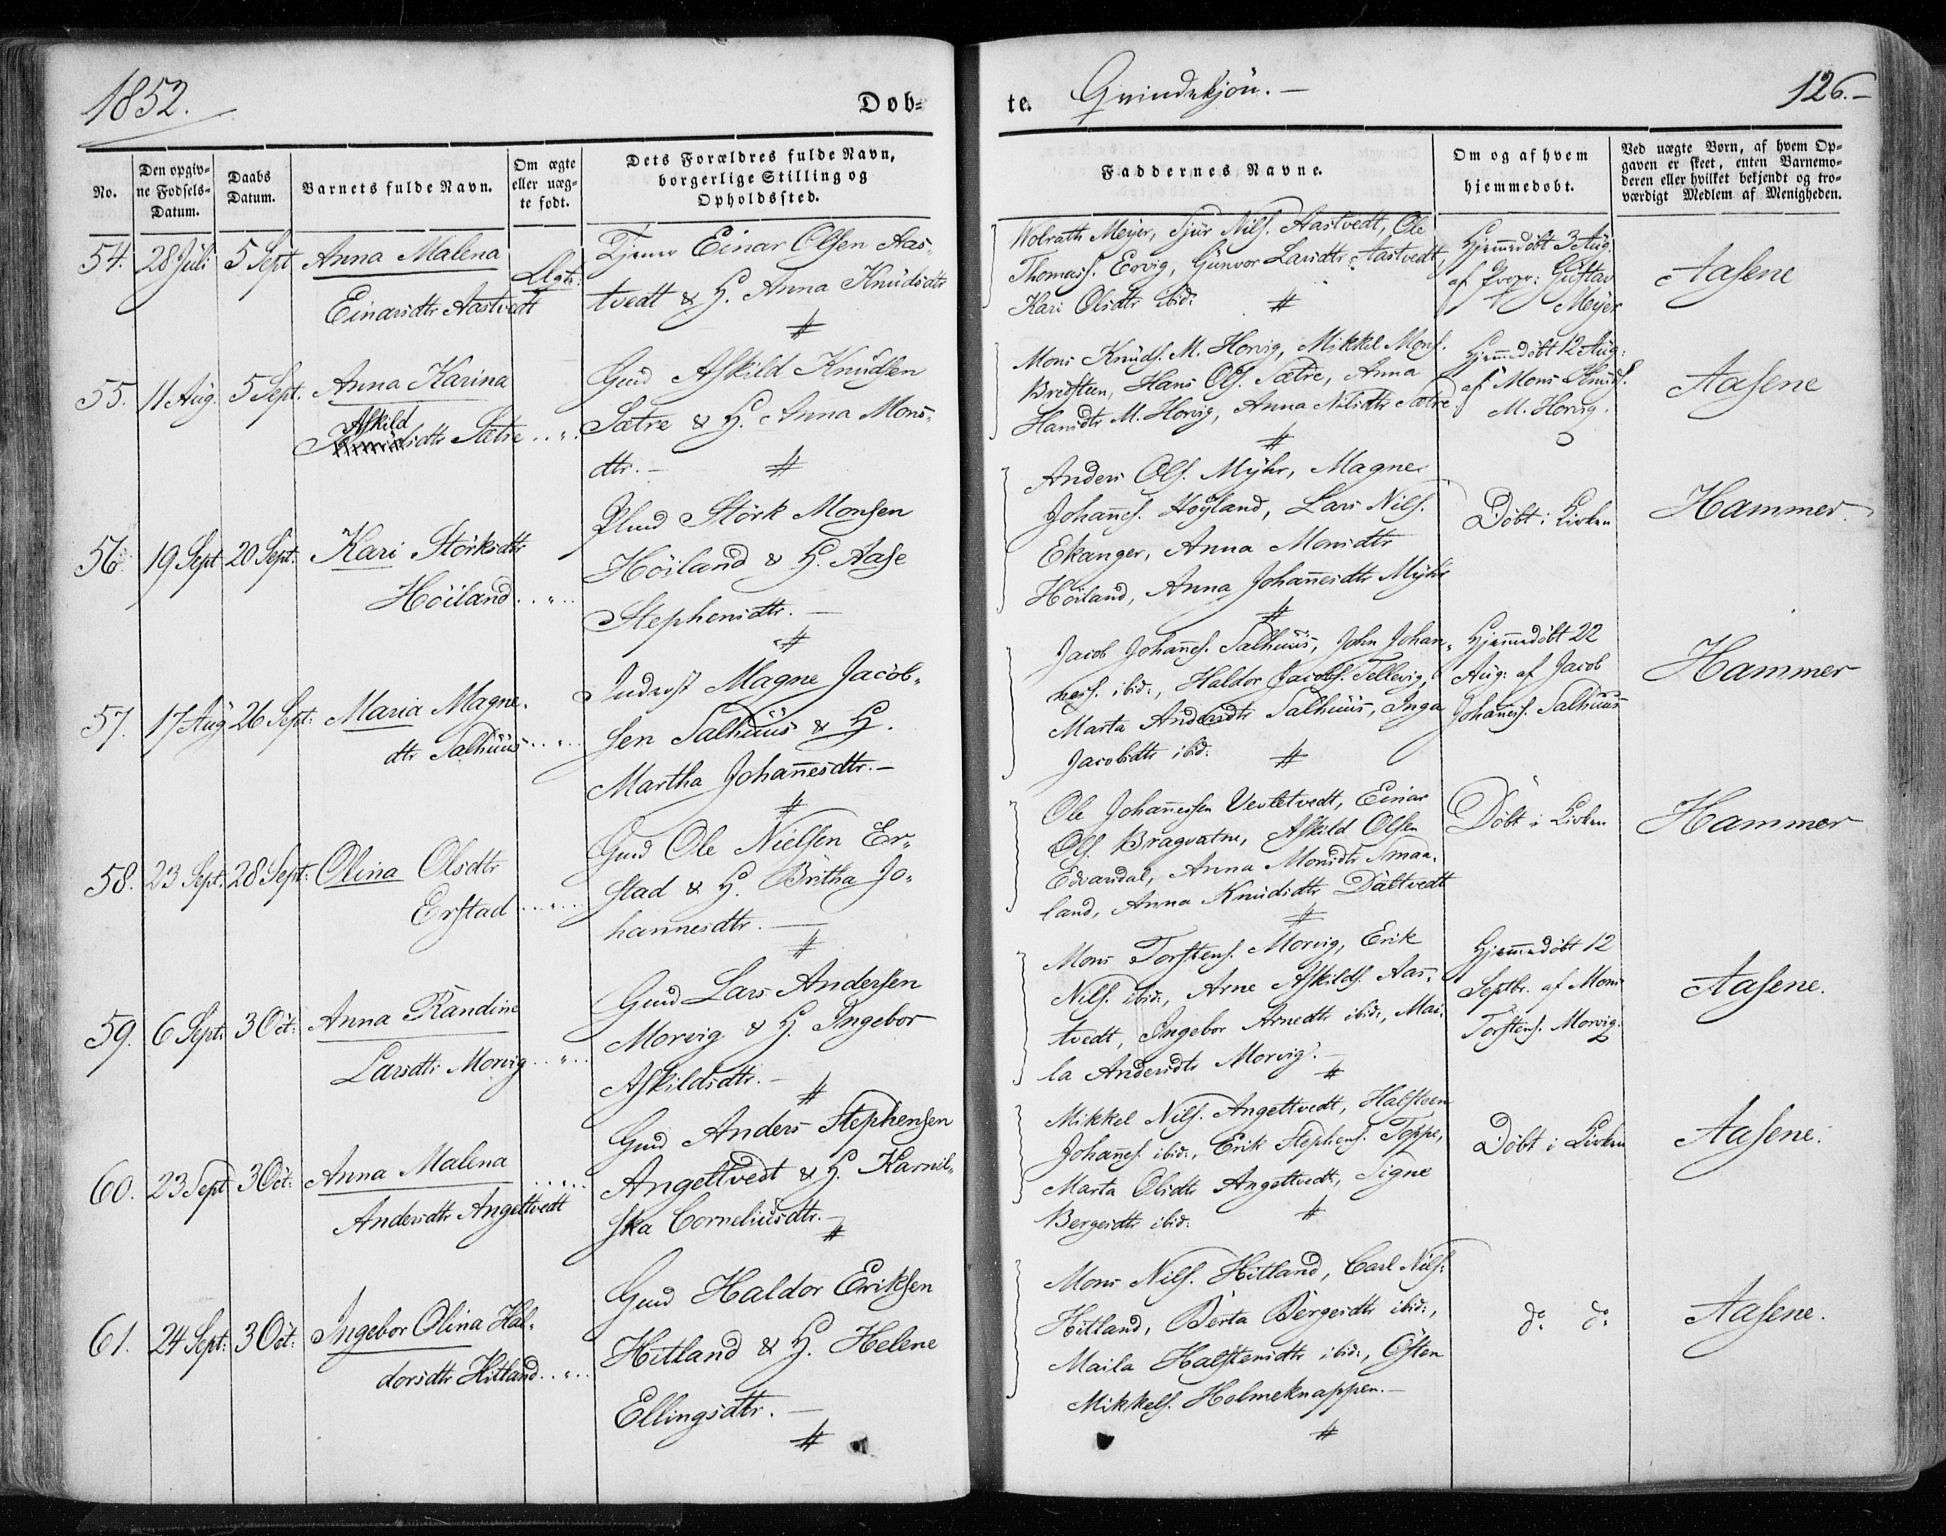 1852.
Døb=
te.
Qvindekjøn.
126.
No.
Den opgiv-
ne Fødsels-
Datum.
Daabs
Datum.
Barnets fulde Navn.
Om ægte
eller uæg-
te født.
Dets Forældres fulde Navn,
borgerlige Stilling og
Opholdssted.
Faddernes Navne.
Om og af hvem
hjemmedøbt.
Ved uægte Børn, af hvem Op-
gaven er skeet, enten Barnemo-
deren eller hvilket bekjendt og tro-
værdigt Medlem af Menigheden.
54. 28 Juli 5 Sept Anna Malena
Einarsdtr Aastvedt
Ægte
Tjener Einar Olsen Aas-
tvedt & H. Anna Knudsdtr
Wolrath Meyer, Sjur Nils. Aastvedt, Ole
Thomass. Ervig, Gunvor Larsdtr Aastvedt,
Kari Olsdtr ibid:
Hjemmedøbt 3 Aug.
af Gustav
Meyer
Aasene
55. 11 Aug. 5 Sept. Anna Karina
Askild
sdtr Sætre
Gmd Askild Knudsen
Sætre & H. Anna Mons-
dtr.
Mons Knuds. M. Horvig, Mikkel Mons.
Bredsteen, Hans Ols. Sætre, Anna
Hansdtr M. Horvig, Anna Nilsdtr Sætre
Hjemmedøbt 12 Aug:
af Mons Knuds.
M. Horvig.
Aasene
56. 19 Sept 20 Sept. Kari Störksdtr
Höiland
Störk Monsen
Höiland & H. Aase
Stephensdtr.
Anders Ols. Myhr, Magne
Johañes. Höyland, Lars Nils.
Ekanger, Anna Monsdtr
Höiland, Anna Johañesdtr Myhr
Döbt i Kirken
Hammer
57. 17 Aug 26 Sept: Maria Magne-
dtr Salhuus
Inderst Magne Jacob-
sen Salhuus & H.
Martha Johañesdtr.
Jacob Johañes. Salhuus, John Johan-
ness. ibid:, Haldor Jacobs. Tellevig,
Marta Andersdtr Salhuus, Inga
Jacobsdtr ibid:
Hjemmedøbt 22
Aug: af Jacob
Johañes. Salhuus
Hammer
58. 23 Sept. 28 Sept: Olina Olsdtr
Erstad
Gmd Ole Nielsen Er-
stad & H. Britha Jo-
hannesdtr.
Ole Johañessen Vestetvedt, Einar
Ols. Bragvatne, Askild Olsen
Edvardal, Anna Monsdtr Smaa-
land, Anna Knudsdtr Daltvedt
Döbt i Kirken
Hammer
59. 6 Sept. 3 Oct: Anna Randine
Larsdtr Morvig
Gmd Lars Andersen
Morvig & H. Ingebor
Askildsdtr.
Mons Torstens. Morvig, Erik
Nils. ibid:, Arne Askilds. Aas-
tvedt, Ingebor Arnedtr ibid:, Mai-
la Andersdtr Morvig.
Hjemmedøbt 12
Septbr. af Mons
Torstens. Morvig.
Aasene.
60. 23 Sept 3 Oct: Anna Malena
Andersdtr Angeltvedt
Gmd Anders Stephensen
Angeltvedt & H. Karnil-
ska Corneliusdtr.
Mikkel Nils. Angeltvedt, Halsteen
Johañes. ibid:, Erik Stephens. Toppe,
Marta Olsdtr Angeltvedt, Signe
Bergesdtr ibid:
Döbt i Kirken
Aasene.
61. 24 Sept: 3 Oct: Ingebor Olina Hal-
dorsdtr Hitland
Gmd Haldor Eriksen
Hitland & H. Helene
Ellingsdtr.
Mons Nils. Hitland, Carl Nils.
Hitland, Berta Bergesdtr ibid:,
Maila Halstensdtr ibid:, Östen
Mikkels. Holmeknappen.
do do
Aasene.